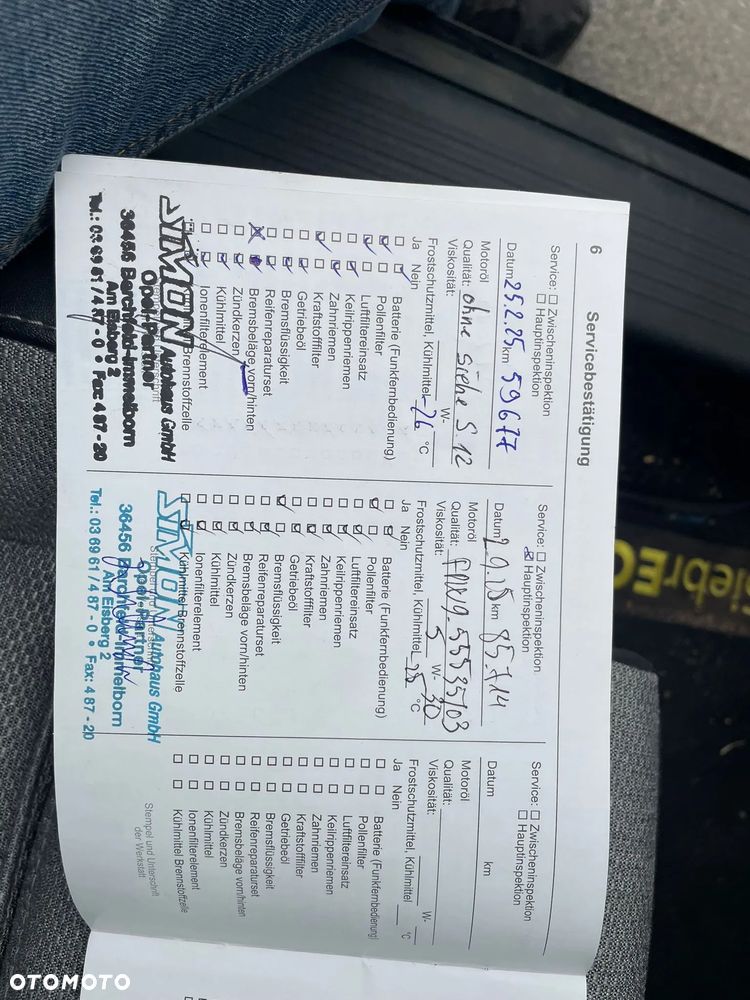 6
Servicebestätigung
Service: Zwischeninspektion
Hauptinspektion
Datum 25.2.25 km 59677
Motoröl
Qualität: ohne siehe S. 12
Viskosität: W-
Frostschutzmittel, Kühlmittel -26 °C
Ja Nein
Batterie (Funkfernbedienung)
Pollenfilter
Luftfiltereinsatz
Keilrippenriemen
Zahnriemen
Kraftstofffilter
Getriebeöl
Bremsflüssigkeit
Reifenreparaturset
Bremsbeläge vorn/hinten
Zündkerzen
Kühlmittel
Ionenfilterelement
Brennstoffzelle
SIMON Autohaus GmbH
Opel-Partner
36456 Barchfeld-Immelborn
Am Eisberg 2
Tel.: 03 69 61 / 4 87 - 0 • Fax: 4 87 - 20
Service: Zwischeninspektion
Hauptinspektion
Datum km 85.714
Motoröl
Qualität:
Viskosität: 5 W- 30
Frostschutzmittel, Kühlmittel °C
Ja Nein
Batterie (Funkfernbedienung)
Pollenfilter
Luftfiltereinsatz
Keilrippenriemen
Zahnriemen
Kraftstofffilter
Getriebeöl
Bremsflüssigkeit
Reifenreparaturset
Bremsbeläge vorn/hinten
Zündkerzen
Ionenfilterelement
Kühlmittel Brennstoffzelle
SIMON Autohaus GmbH
Opel-Partner
36456 Barchfeld-Immelborn
Am Eisberg 2
Tel.: 03 69 61 / 4 87 - 0 • Fax: 4 87 - 20
Service: Zwischeninspektion
Hauptinspektion
Datum km
Motoröl
Qualität:
Viskosität: W-
Frostschutzmittel, Kühlmittel °C
Ja Nein
Batterie (Funkfernbedienung)
Pollenfilter
Luftfiltereinsatz
Keilrippenriemen
Zahnriemen
Kraftstofffilter
Getriebeöl
Bremsflüssigkeit
Reifenreparaturset
Bremsbeläge vorn/hinten
Zündkerzen
Kühlmittel
Ionenfilterelement
Kühlmittel Brennstoffzelle
Stempel und Unterschrift
der Werkstatt
OTOMOTO